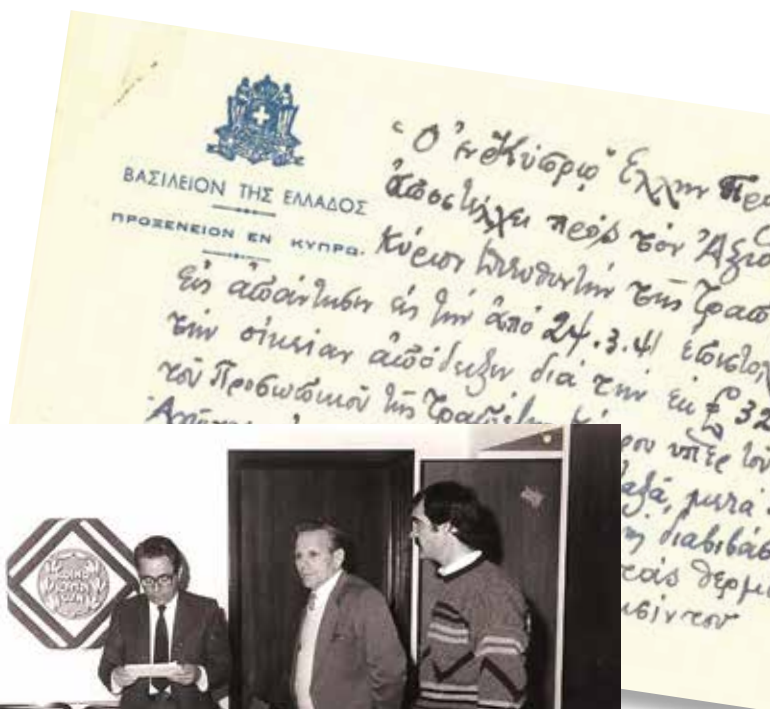 ΒΑΣΙΛΕΙΟΝ ΤΗΣ ΕΛΛΑΔΟΣ
ΠΡΟΞΕΝΕΙΟΝ ΕΝ ΚΥΠΡΩ.
Ὁ ἐν Κύπρῳ Ἕλλην Πρ
ἀποστέλλει πρὸς τὸν Ἀξιο
Κύριον Διευθυντὴν τῆς Τραπ
Εἰς ἀπάντησιν εἰς τὴν ἀπό 24.3.41 ἐπιστολ
τὴν οἰκείαν ἀπόδειξιν διὰ τὴν ἐκ £ 32
τοῦ Προσωπικοῦ τῆς Τραπέζης ρου ὑπὲρ τοῦ
αξᾶ, μετὰ
διαβιβάσ
τὰς θερμ
ΚΟΙΝΟ
ΚΥΠΡΙ
ΩΝ